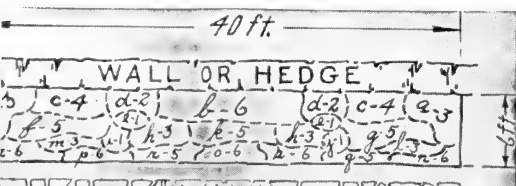 40 ft.
WALL OR HEDGE
c-4 d-2 b-6 d-2 c-4 a-3
f-5 i-1 h-3 k-5 h-3 j-1 g-5 l-3
m-3 p-6 n-5 o-6 k-6 g-5 n-6
6 ft.